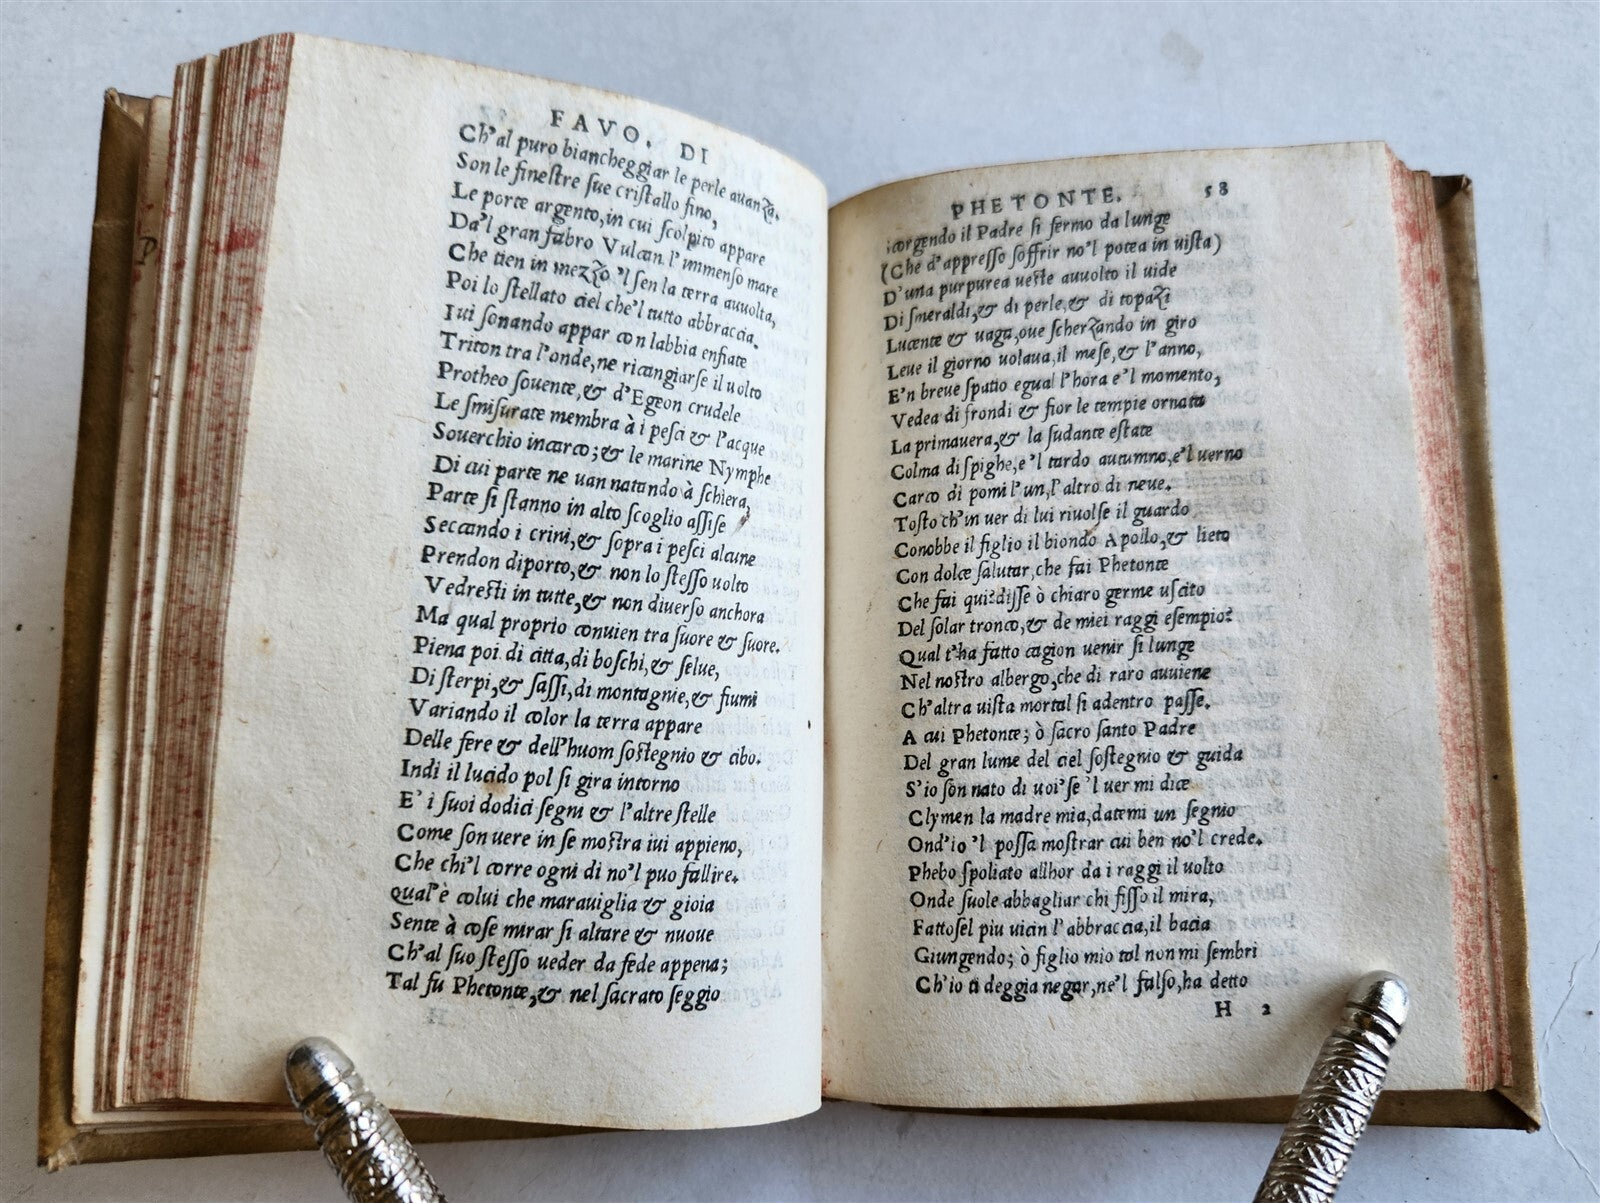 FAVO. DI
Ch'al puro biancheggiar le perle auanza.
Son le finestre sue cristallo fino,
Le porte argento, in cui scolpito appare
Da'l gran fabro Vulcan l'immenso mare
Che tien in mezzo 'l sen la terra auuolta,
Poi lo stellato ciel che'l tutto abbraccia.
Iui sonando appar con labbia enfiate
Triton tra l'onde, ne ricangiarse il uolto
Protheo souente, & d'Egeon crudele
Le smisurate membra à i pesci & l'acque
Souerchio incarco; & le marine Nymphe
Di cui parte ne uan natando à schiera,
Parte si stanno in alto scoglio assise
Seccando i crini, & sopra i pesci alcune
Prendon diporto, & non lo stesso uolto
Vedresti in tutte, & non diuerso anchora
Ma qual proprio conuien tra suore & suore.
Piena poi di citta, di boschi, & selue,
Di sterpi, & sassi, di montagnie, & fiumi
Variando il color la terra appare
Delle fere & dell'huom sostegnio & cibo.
Indi il lucido pol si gira intorno
E' i suoi dodici segni & l'altre stelle
Come son uere in se mostra iui appieno,
Che chi'l corre ogni di no'l puo fallire.
Qual'è colui che marauiglia & gioia
Sente à cose mirar si altare & nuoue
Ch'al suo stesso ueder da fede appena;
Tal fu Phetonte, & nel sacrato seggio
PHETONTE. 58
icorgendo il Padre si fermo da lunge
(Che d'appresso soffrir no'l potea in uista)
D'una purpurea ueste auuolto il uide
Di smeraldi, & di perle, & di topazi
Lucente & uaga, oue scherzando in giro
Leue il giorno uolaua, il mese, & l'anno,
E'n breue spatio egual l'hora e'l momento,
Vedea di frondi & fior le tempie ornata
La primauera, & la sudante estate
Colma di spighe, e 'l tardo autumno, e'l uerno
Carco di pomi l'un, l'altro di neue.
Tosto ch'in uer di lui riuolse il guardo
Conobbe il figlio il biondo Apollo, & lieto
Con dolce salutar, che fai Phetonte
Che fai qui? disse ò chiaro germe uscito
Del solar tronco, & de miei raggi esempio?
Qual t'ha fatto cagion uenir si lunge
Nel nostro albergo, che di raro auuiene
Ch'altra uista mortal si adentro passe.
A cui Phetonte; ò sacro santo Padre
Del gran lume del ciel sostegnio & guida
S'io son nato di uoi' se 'l uer mi dice
Clymen la madre mia, datemi un segnio
Ond'io 'l possa mostrar cui ben no'l crede.
Phebo spoliato allhor da i raggi il uolto
Onde suole abbagliar chi fisso il mira,
Fattosel piu uicin l'abbraccia, il bacia
Giungendo; ò figlio mio tal non mi sembri
Ch'io ti deggia negar, ne'l falso, ha detto
H 2